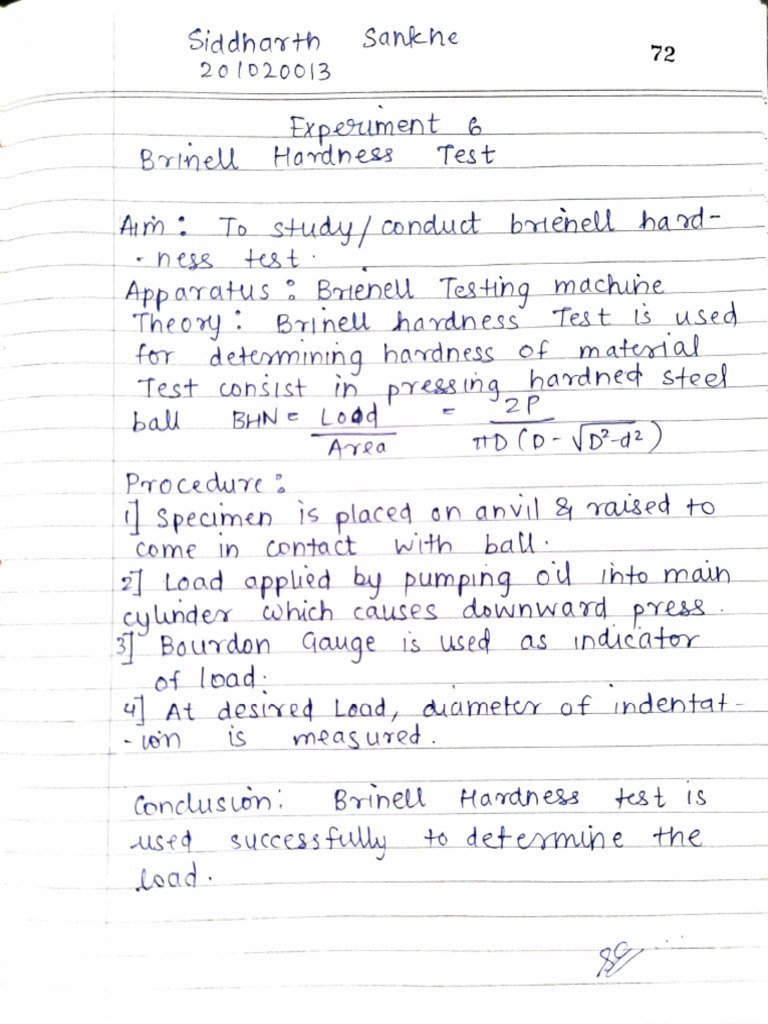 Siddharth Sankhe
72
201020013
Experiment 6
Brinell Hardness Test
Aim: To study/conduct brienell hard-
- ness test.
Apparatus: Brienell Testing machine
Theory: Brinell hardness Test is used
for determining hardness of material
Test consist in pressing hardned steel
ball BHN = Load / Area = 2P / πD (D - √D²-d²)
Procedure:
1] Specimen is placed on anvil & raised to
come in contact with ball.
2] Load applied by pumping oil into main
cylinder which causes downward press.
3] Bourdon Gauge is used as indicator
of load.
4] At desired Load, diameter of indentat-
-ion is measured.
Conclusion: Brinell Hardness test is
used successfully to determine the
load.